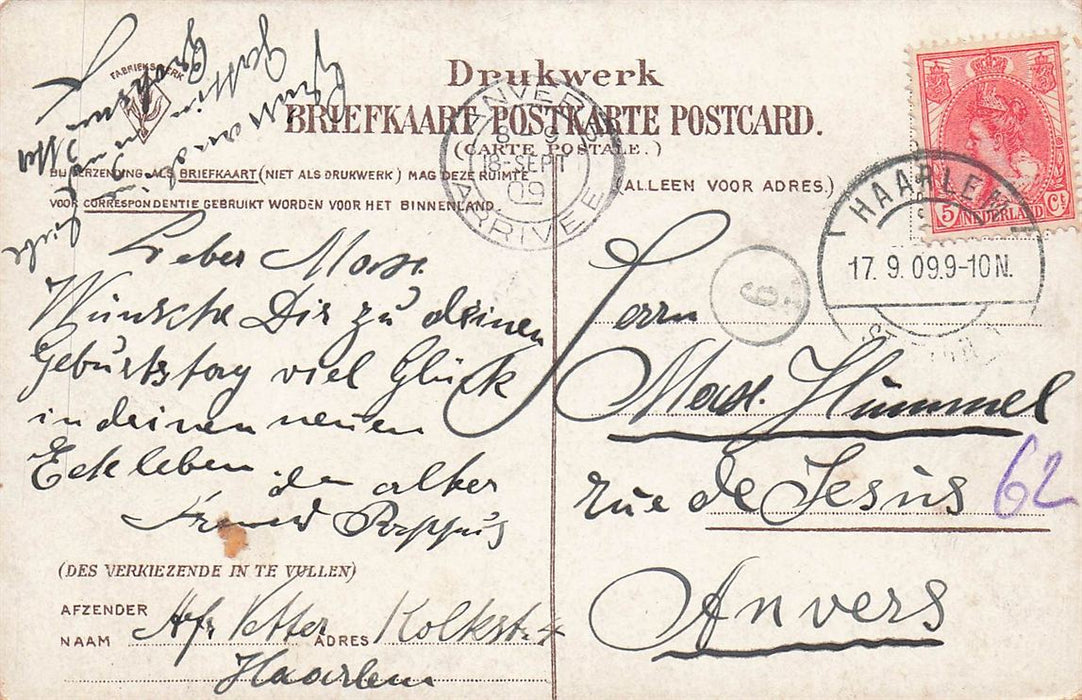 FABRIEKSMERK
Drukwerk
BRIEFKAART POSTKARTE POSTCARD.
(CARTE POSTALE.)
BIJ VERZENDING ALS BRIEFKAART (NIET ALS DRUKWERK) MAG DEZE RUIMTE
VOOR CORRESPONDENTIE GEBRUIKT WORDEN VOOR HET BINNENLAND.
(ALLEEN VOOR ADRES.)
ANVERS
8 9 S
18-SEPT
09
ARRIVEE
5 NEDERLAND Ct
HAARLEM
17. 9. 09.9-10N.
6
Lieber Max.
Wünsche Dir zu deinen
Geburtstag viel Glück
in deinen neuen
Eckleben. den alter
Freund
Herrn
Max. Hümmel
rue de Jesus 62
Anvers
(DES VERKIEZENDE IN TE VULLEN)
AFZENDER
NAAM Vetter ADRES Kolkstr. 4
Haarlem